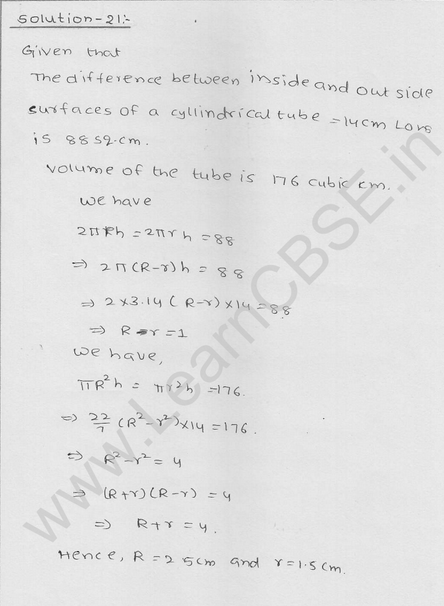 Solution-21:-
Given that
The difference between inside and out side
surfaces of a cyllindrical tube =14cm Long
is 88 sq.cm.
volume of the tube is 176 cubic cm.
We have
2πRh = 2πrh = 88
⇒ 2π(R-r)h = 88
⇒ 2×3.14 (R-r)×14 = 88
⇒ R-r = 1
We have,
πR²h = πr²h = 176.
⇒ 22/7 (R²-r²)×14 = 176.
⇒ R²-r² = 4
⇒ (R+r)(R-r) = 4
⇒ R+r = 4.
Hence, R = 2.5cm and r = 1.5cm.
www.LearnCBSE.in